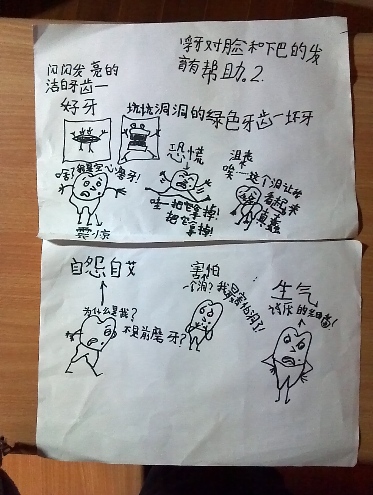 乳牙对脸和下巴的发
育有帮助。2.
闪闪发亮的
洁白牙齿—
好牙
坑坑洞洞的绿色牙齿—坏牙
恐慌
沮丧
啥?我是空心磨牙!
唉……这个洞让我
看起来
真蠢
哇—把它拿掉!
把它拿掉!
震惊
自怨自艾
害怕
生气
为什么是我?
不是前磨牙?
一个洞?我最害怕洞了!